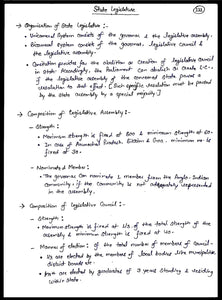 State Legislature
→ Organisation of State Legislature :-
• Unicameral System consists of the governor & the legislative assembly.
• Bicameral system consists of the governor, legislative council &
the legislative assembly.
• Constitution provides for the abolition or creation of legislative council
in state. Accordingly, the Parliament can abolish or create L.C.
if the legislative assembly of the concerned state passes a
resolution to that effect. [Such specific resolution must be passed
by the state assembly by a special majority]
→ Composition of Legislative Assembly:-
- Strength :
• Maximum strength is fixed at 500 & minimum strength at 60.
• In case of Arunachal Pradesh, Sikkim & Goa, minimum no. is
fixed at 30.
- Nominated Member :
• The governor can nominate 1 member from the Anglo-Indian
community, if the community is not adequately represented
in the assembly.
→ Composition of Legislative Council :-
- Strength :
• Maximum strength is fixed at 1/3 of the total strength of the
assembly & minimum strength is fixed at 40.
- Manner of election : Of the total number of members of council -
• 1/3 are elected by the members of local bodies like municipalities,
district boards etc.
• 1/12 are elected by graduates of 3 years standing & residing
within state.